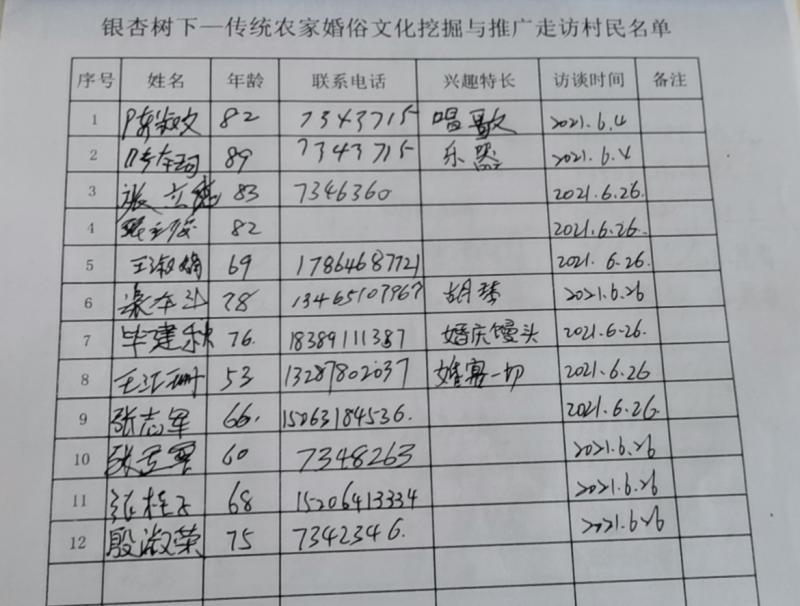 银杏树下—传统农家婚俗文化挖掘与推广走访村民名单
序号 姓名 年龄 联系电话 兴趣特长 访谈时间 备注
1 陈淑文 82 7343715 唱歌 2021.6.4
2 89 7343715 乐器 2021.6.4
3 张立德 83 7346360 2021.6.26.
4 82 2021.6.26.
5 王淑娟 69 17864687721 2021.6.26.
6 78 13465107967 胡琴 2021.6.26
7 毕建秋 76. 18389111387 婚庆馒头 2021.6.26.
8 王江珊 53 13287802037 婚宴一切 2021.6.26
9 张志军 66. 15063184536. 2021.6.26.
10 60 7348263 2021.6.26
11 张桂子 68 15206413334 2021.6.26
12 殷淑荣 75 7342346. 2021.6.26